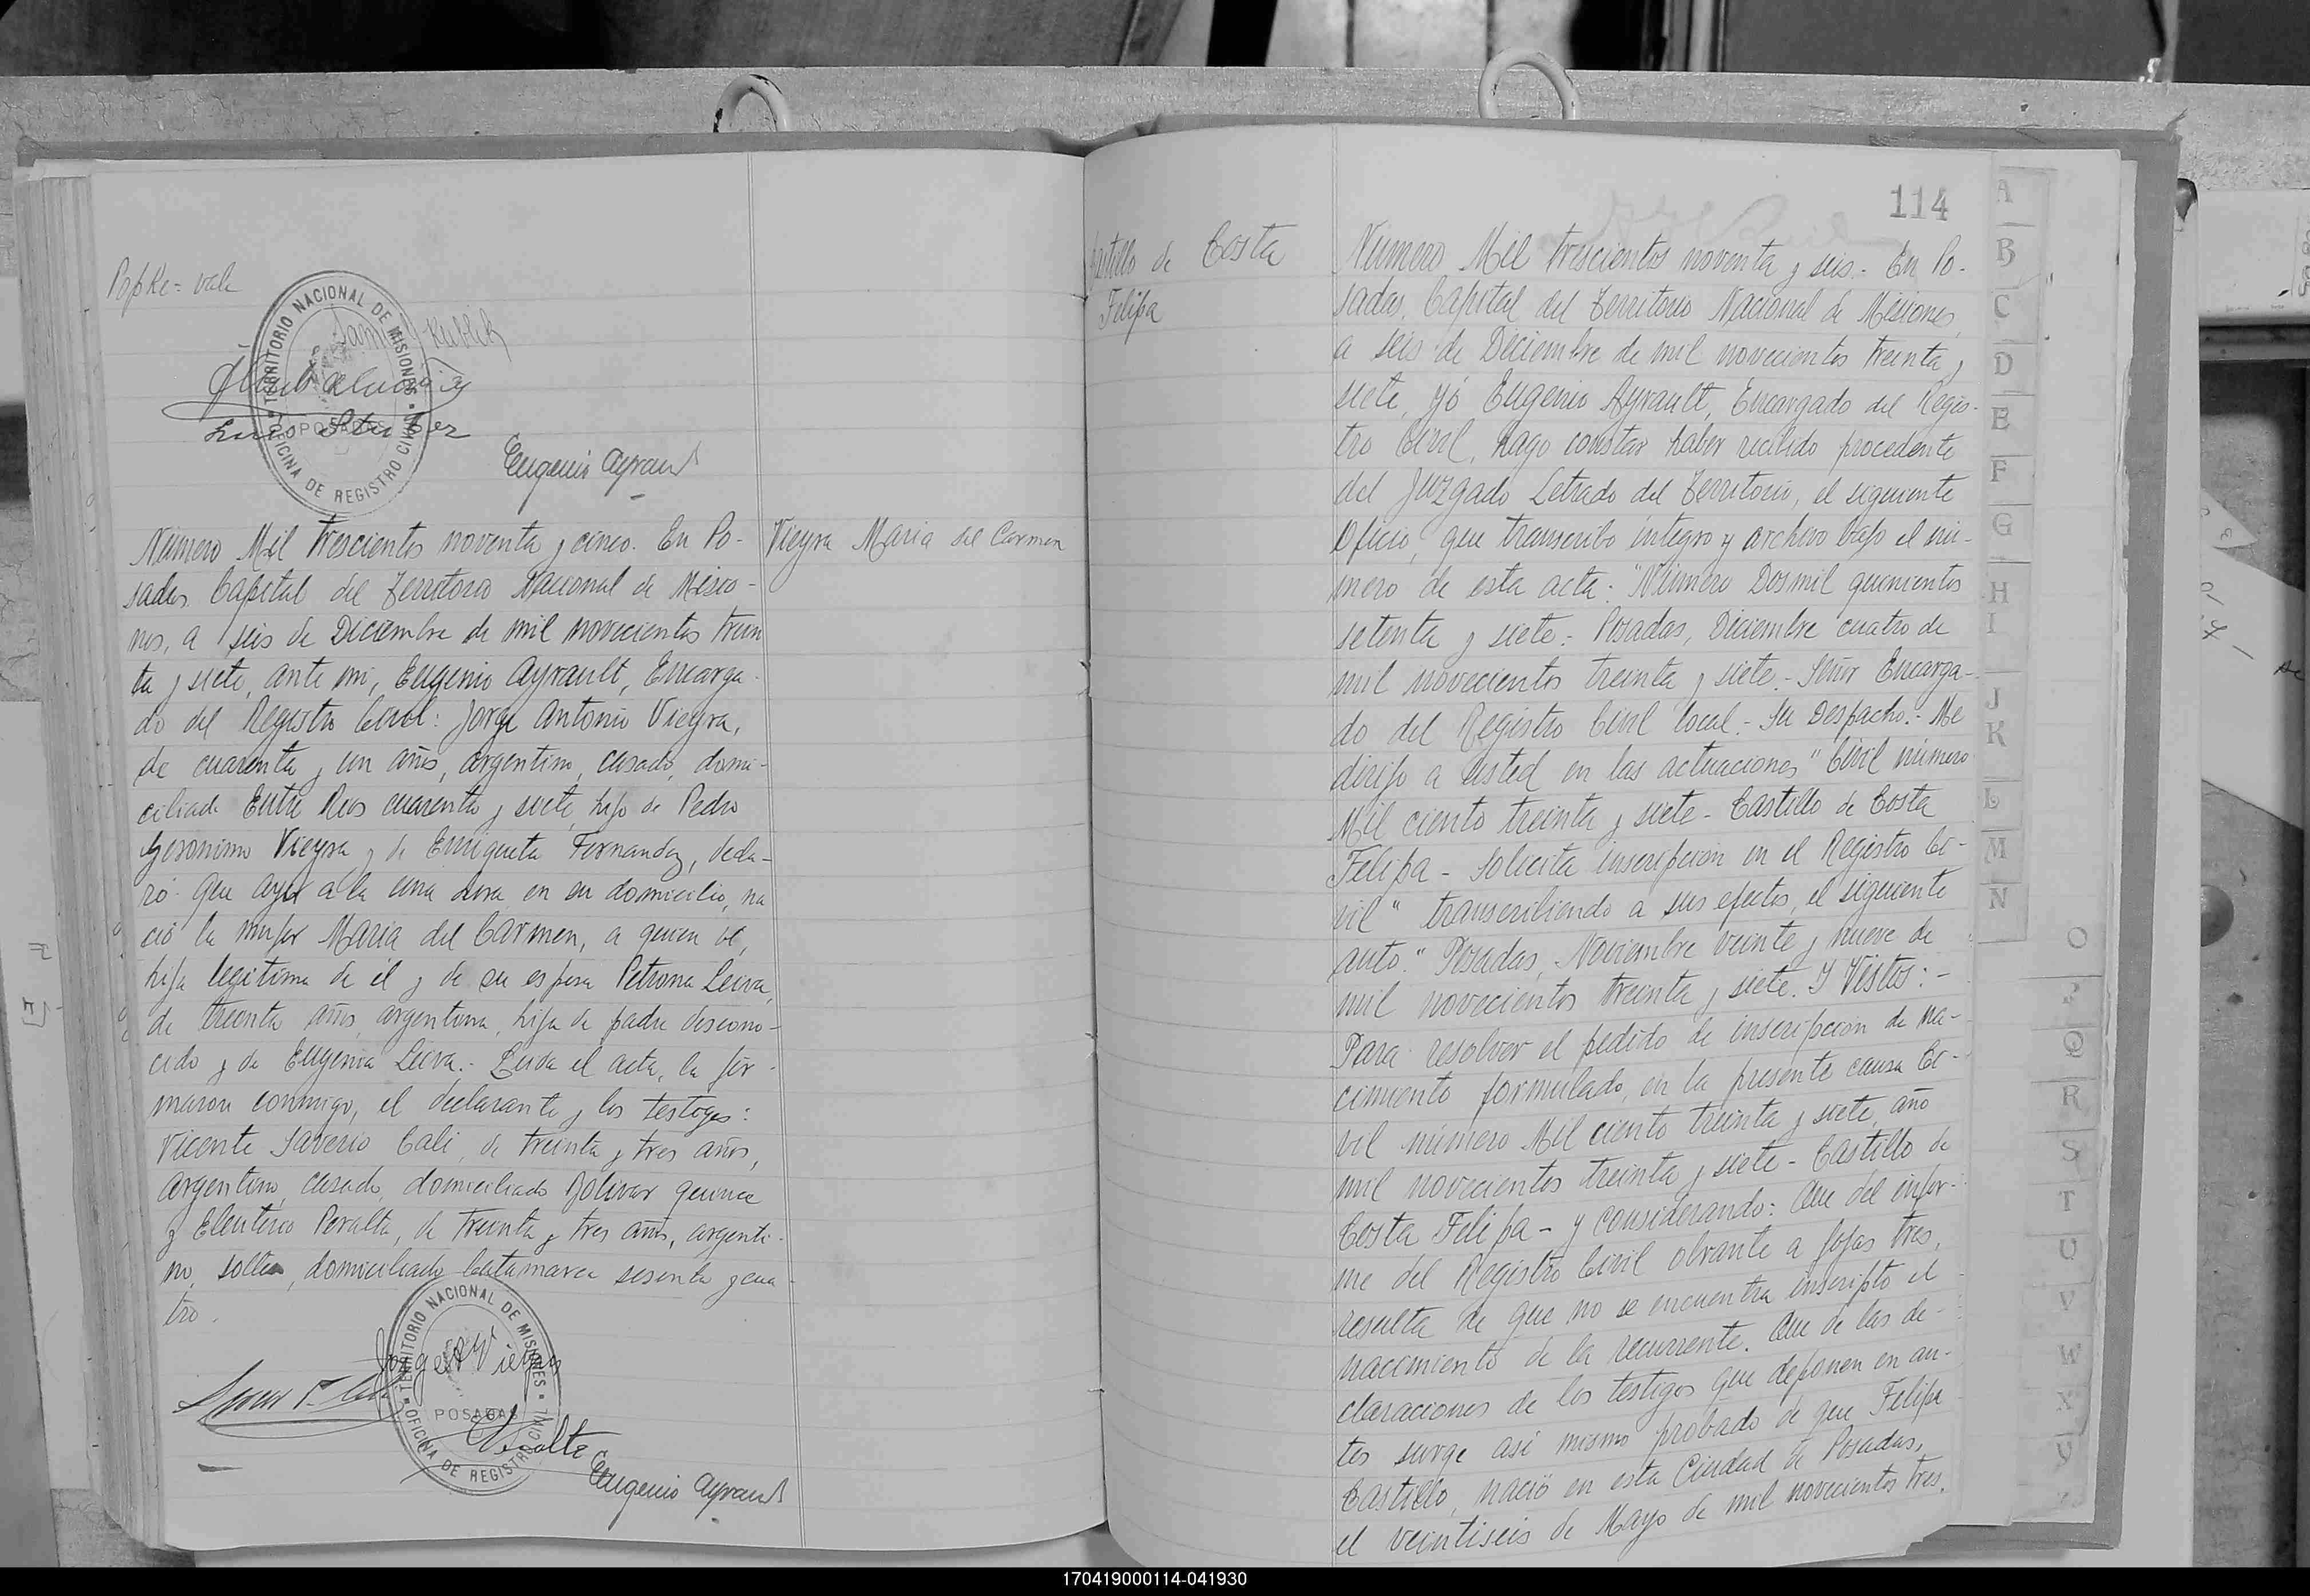 Popke = vale
TERRITORIO NACIONAL DE MISIONES
POSADAS
OFICINA DE REGISTRO CIVIL
Eugenio Ayrault
Número Mil trescientos noventa y cinco. En Po-
sadas Capital del Territorio Nacional de Misio-
nes, a seis de Diciembre de mil novecientos trein
ta y siete, ante mi, Eugenio Ayrault, Encarga-
do del Registro Civil: Jorge Antonio Vieyra,
de cuarenta y un años, argentino, casado, domi-
ciliado Entre Rios cuarenta y siete, hijo de Pedro
Geronimo Vieyra y de Enriqueta Fernandez, decla-
ró: Que ayer a la una hora en su domicilio, na
ció la mujer Maria del Carmen, a quien ví,
hija legitima de él y de su esposa Petrona Leiva,
de treinta años, argentina, hija de padre descono-
cido y de Eugenia Leiva.- Leida el acta, la fir-
maron conmigo, el declarante y los testigos:
Vicente Saverio Cali, de treinta y tres años,
argentino, casado, domiciliado Bolivar quince
y Eleuterio Peralta, de treinta y tres años, argenti-
no, soltero, domiciliado Catamarca sesenta y cua-
tro.
Vieyra Maria del Carmen
TERRITORIO NACIONAL DE MISIONES
Jorge A Vieyra
POSADAS
OFICINA DE REGISTRO CIVIL
Peralta
Eugenio Ayrault
114
Castillo de Costa
Felipa
Número Mil trescientos noventa y seis.- En Po-
sadas, Capital del Territorio Nacional de Misiones,
a seis de Diciembre de mil novecientos treinta y
siete, yó Eugenio Ayrault, Encargado del Regis-
tro Civil, hago constar haber recibido procedente
del Juzgado Letrado del Territorio, el siguiente
Oficio, que transcribo íntegro y archivo bajo el nú-
mero de esta acta: "Número Dos mil quinientos
setenta y siete.- Posadas, Diciembre cuatro de
mil novecientos treinta y siete.- Señor Encarga-
do del Registro Civil local.- Su Despacho.- Me
dirijo a usted en las actuaciones "Civil número
Mil ciento treinta y siete - Castillo de Costa
Felipa - Solicita inscripcion en el Registro Ci-
vil" transcribiendo a sus efectos, el siguiente
auto: "Posadas, Noviembre veinte y nueve de
mil novecientos treinta y siete. Y Vistos:-
Para resolver el pedido de inscripcion de na-
cimiento formulado, en la presente causa Ci-
vil número Mil ciento treinta y siete, año
mil novecientos treinta y siete - Castillo de
Costa Felipa - y Considerando: Que del infor-
me del Registro Civil obrante a fojas tres,
resulta de que no se encuentra inscripto el
nacimiento de la recurrente. Que de las de-
claraciones de los testigos que deponen en au-
tos surge asi mismo probado de que Felipa
Castillo, nació en esta Ciudad de Posadas,
el veintiseis de Mayo de mil novecientos tres.
A
B
C
D
E
F
G
H
I
J
K
L
M
N
O
P
Q
R
S
T
U
V
W
X
Y
170419000114-041930